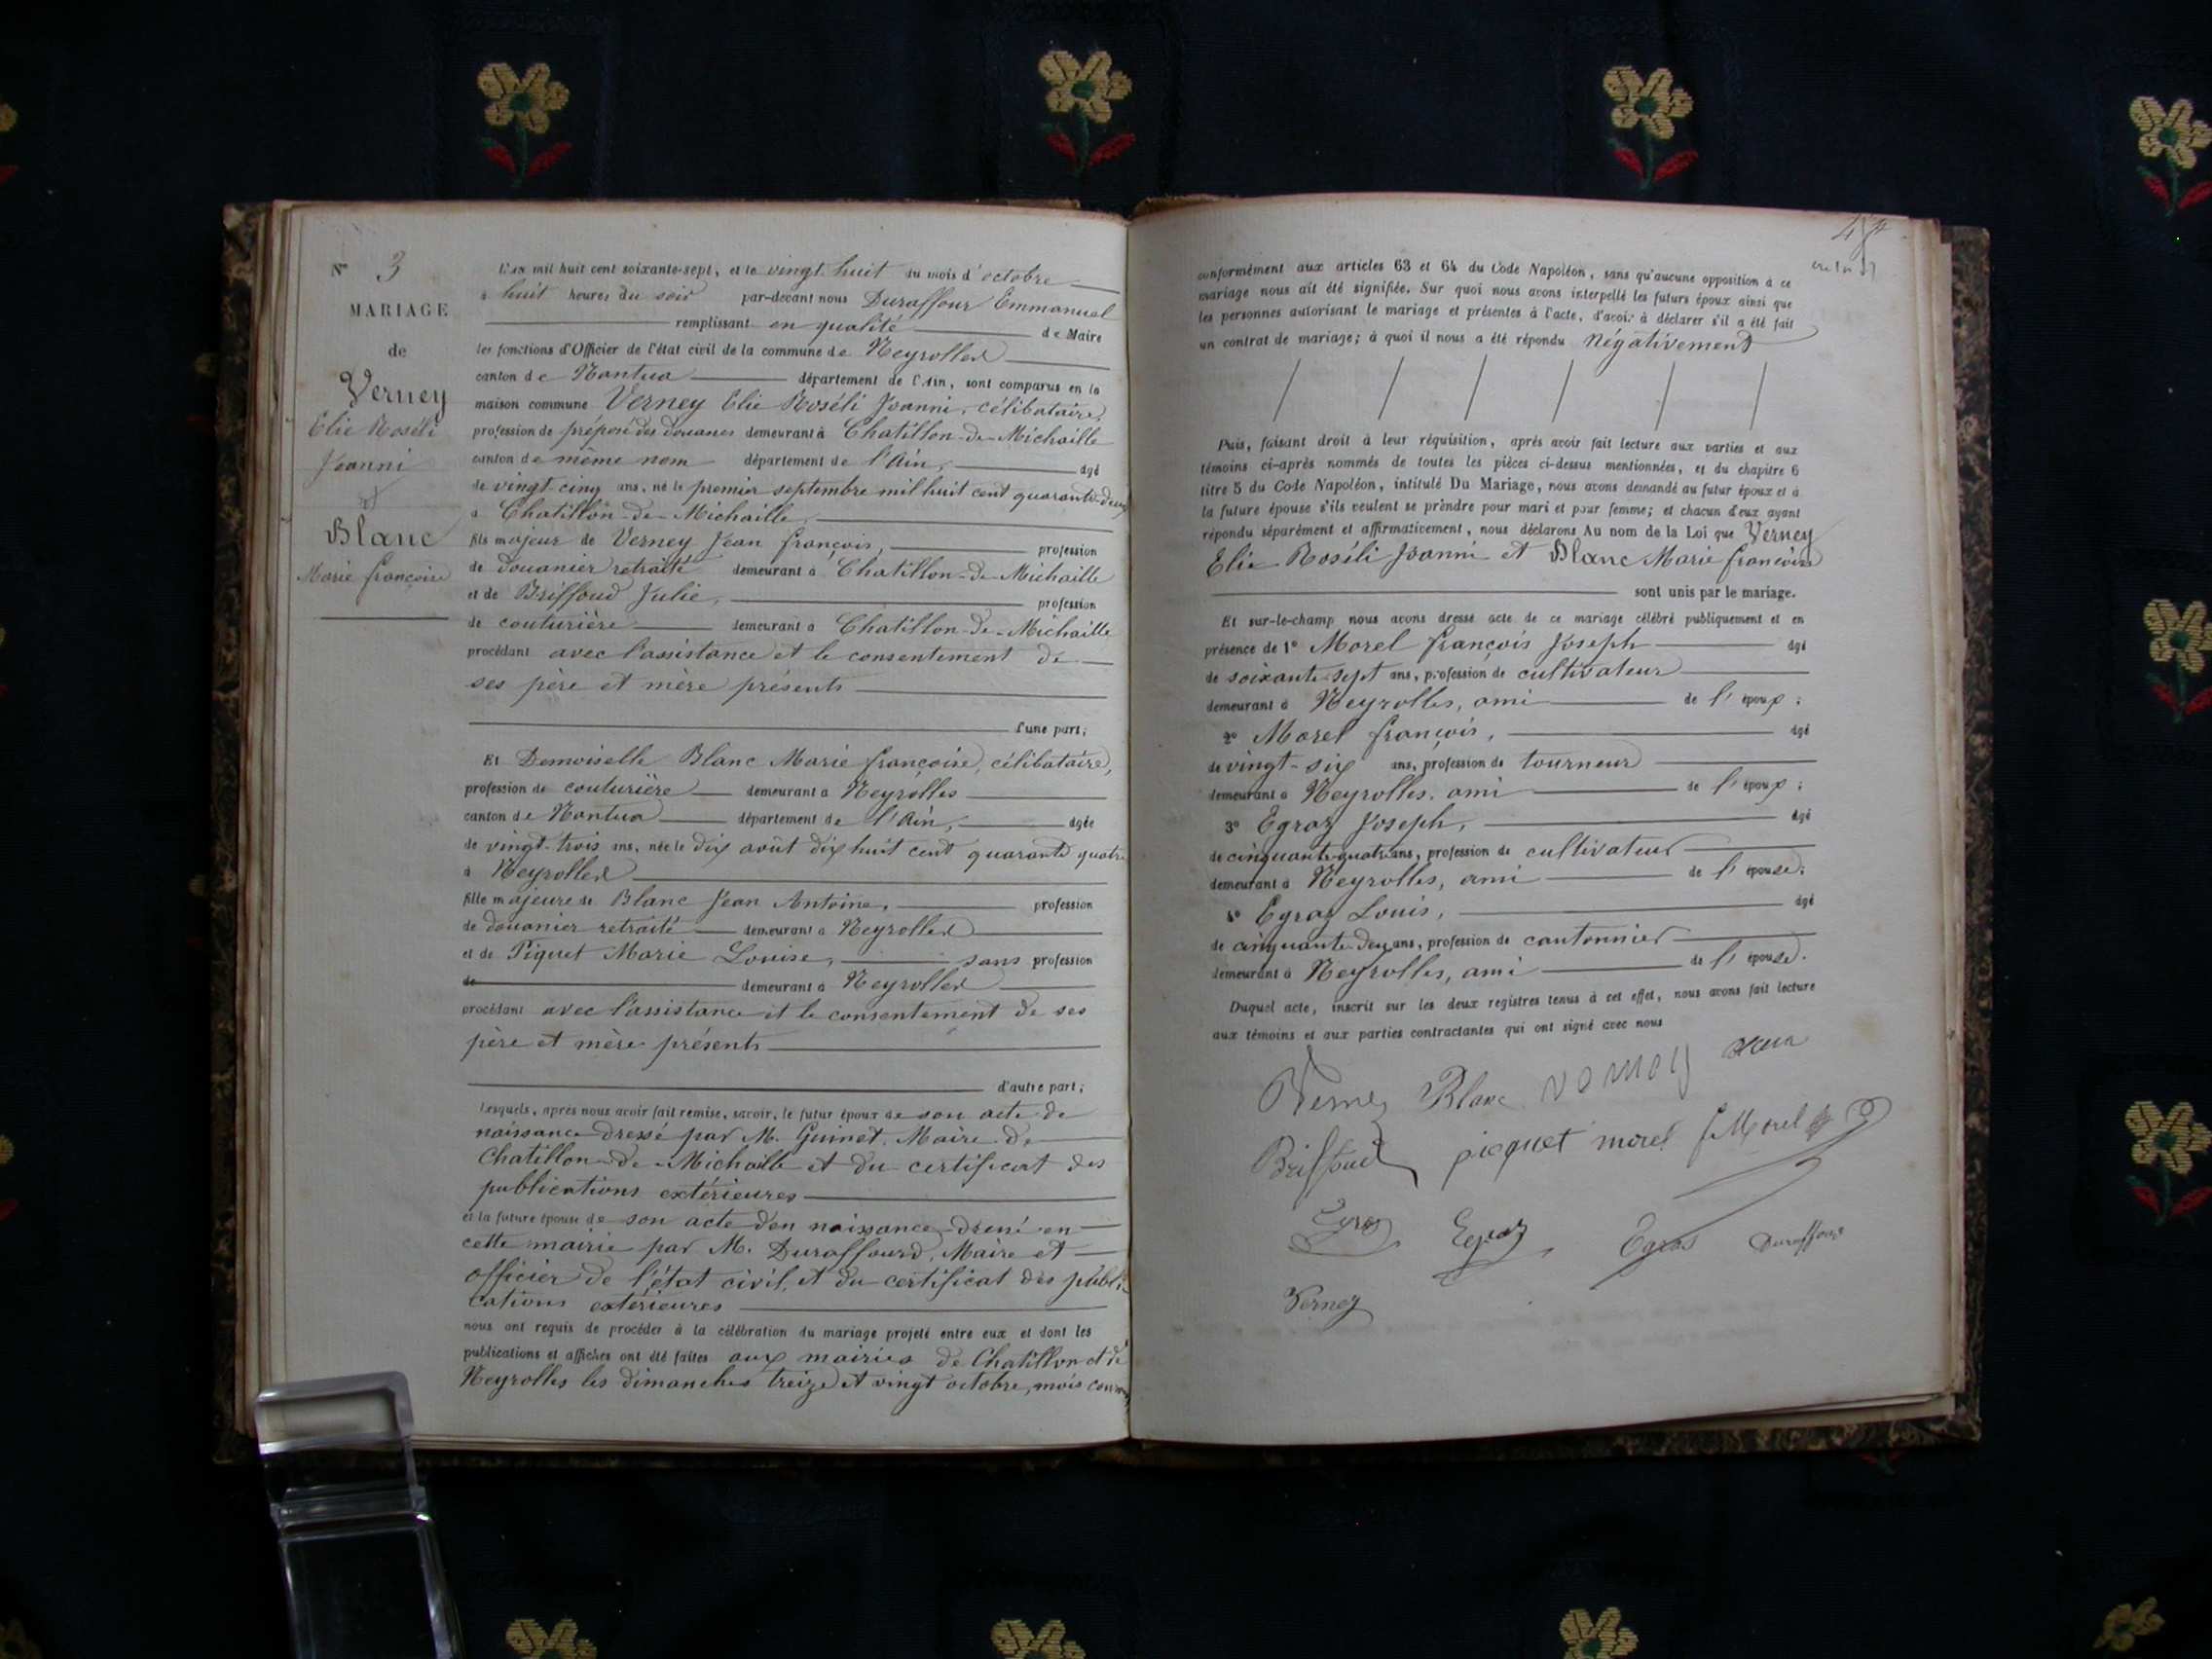 N° 3
MARIAGE
de
Verney
Elie Roséli
Joanni
et
Blanc
Marie françoise
L'an mil huit cent soixante-sept, et le vingt huit du mois d'octobre
à huit heures du soir par-devant nous Duraffour Emmanuel
remplissant en qualité de Maire
les fonctions d'Officier de l'état civil de la commune de Neyrolles
canton de Nantua département de l'Ain, sont comparus en la
maison commune Verney Elie Roséli Joanni, célibataire,
profession de préposé des douanes demeurant à Chatillon-de-Michaille
canton de même nom département de l'Ain, âgé
de vingt cinq ans, né le premier septembre mil huit cent quarante-deux
à Chatillon-de-Michaille,
fils majeur de Verney Jean françois, profession
de douanier retraité demeurant à Chatillon-de-Michaille
et de Briffoud Julie, profession
de couturière demeurant à Chatillon-de-Michaille
procédant avec l'assistance et le consentement de
ses père et mère présents
d'une part;
Et Demoiselle Blanc Marie françoise, célibataire,
profession de couturière demeurant à Neyrolles
canton de Nantua département de l'Ain, âgée
de vingt-trois ans, née le dix août dix huit cent quarante quatre
à Neyrolles
fille majeure de Blanc Jean Antoine, profession
de douanier retraité demeurant à Neyrolles
et de Piquet Marie Louise, sans profession
de demeurant à Neyrolles
procédant avec l'assistance et le consentement de ses
père et mère présents
d'autre part;
Lesquels, après nous avoir fait remise, savoir, le futur époux de son acte de
naissance dressé par M. Guinet, Maire de
Chatillon-de-Michaille et du certificat des
publications extérieures
et la future épouse de son acte d'en naissance dressé en
cette mairie par M. Duraffourd, Maire et
officier de l'état civil, et du certificat des publi-
cations extérieures
nous ont requis de procéder à la célébration du mariage projeté entre eux et dont les
publications et affiches ont été faites aux mairies de Chatillon et de
Neyrolles les dimanches treize et vingt octobre, mois courant
conformément aux articles 63 et 64 du Code Napoléon, sans qu'aucune opposition à ce
mariage nous ait été signifiée. Sur quoi nous avons interpellé les futurs époux ainsi que
les personnes autorisant le mariage et présentes à l'acte, d'avoir à déclarer s'il a été fait
un contrat de mariage; à quoi il nous a été répondu négativement
Puis, faisant droit à leur réquisition, après avoir fait lecture aux parties et aux
témoins ci-après nommés de toutes les pièces ci-dessus mentionnées, et du chapitre 6
titre 5 du Code Napoléon, intitulé Du Mariage, nous avons demandé au futur époux et à
la future épouse s'ils veulent se prendre pour mari et pour femme; et chacun d'eux ayant
répondu séparément et affirmativement, nous déclarons Au nom de la Loi que Verney
Elie Roséli Joanni et Blanc Marie françoise
sont unis par le mariage.
Et sur-le-champ nous avons dressé acte de ce mariage célébré publiquement et en
présence de 1° Morel françois Joseph âgé
de soixante sept ans, profession de cultivateur
demeurant à Neyrolles, ami de l'époux;
2° Morel françois, âgé
de vingt-six ans, profession de tourneur
demeurant à Neyrolles, ami de l'époux;
3° Egraz Joseph, âgé
de cinquante quatre ans, profession de cultivateur
demeurant à Neyrolles, ami de l'épouse;
4° Egraz Louis, âgé
de cinquante-deux ans, profession de cantonnier
demeurant à Neyrolles, ami de l'épouse.
Duquel acte, inscrit sur les deux registres tenus à cet effet, nous avons fait lecture
aux témoins et aux parties contractantes qui ont signé avec nous
Verney Blanc verney
Briffoud picquet morel f Morel
Egraz Egraz Egras Duraffour
Verney